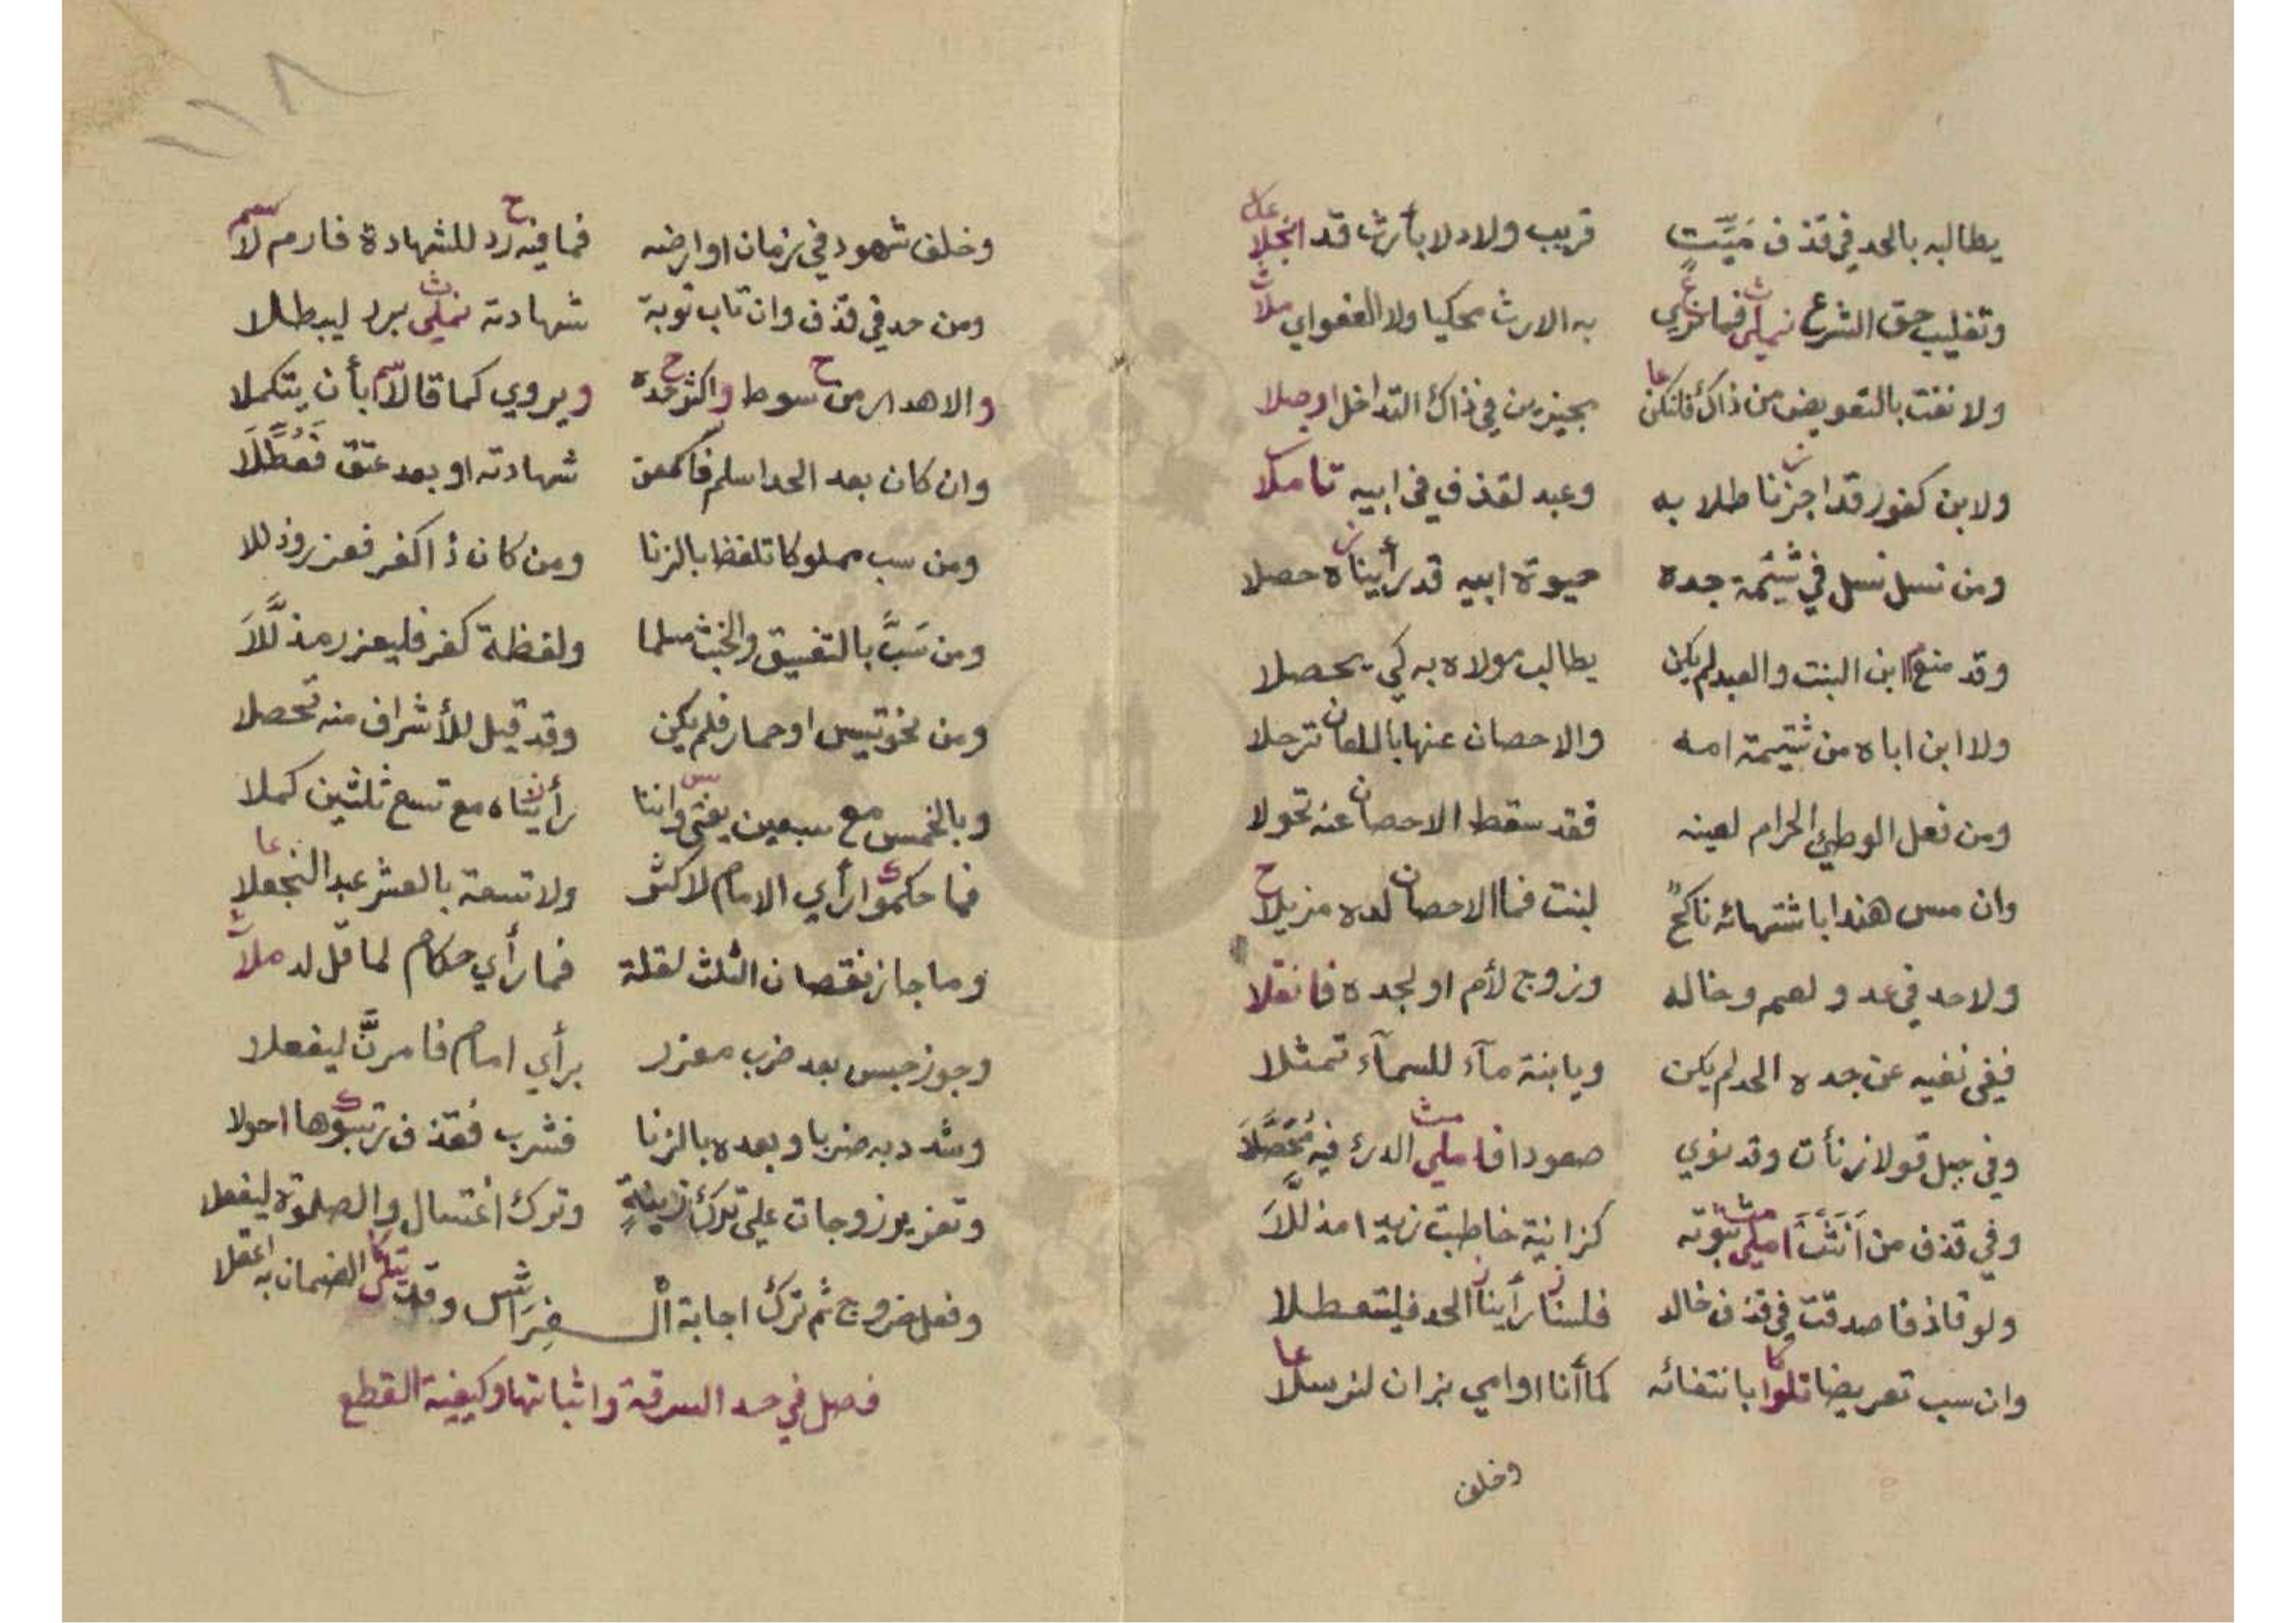 يطالبه بالحد في قذف مَيِّتٍ قريب ولاد لا بأرث قد انجلا
وتغليب حق الشرع نملي فما نري به الارث محكيا ولا العفو اي ملا
ولا نفت بالتعويض من ذاك فلتكن بجيزين في ذاك التداخل اوصلا
ولابن كفور قد اجزنا طلابه وعبد لقذف في ابيه تأملا
ومن نسل نسل في شتيمة جده حيوة ابيه قد رأيناه حصلا
وقد منع ابن البنت والعبد لم يكن يطالب مولاه به كي يحصلا
ولا ابن اباه من شتيمة امه والاحصان عنها باللعان ترحلا
ومن فعل الوطئ الحرام لعينه فقد سقط الاحصان عنه تحولا
وان مس هندا باشتهائه ناكحٌ لبنت فما الاحصان لده مزيلا
ولا حد في عد ولعم وخاله وزوج لأم او لجده فانقلا
ففي نفيه عن جده الحد لم يكن ويابنة مآء للسمآء تمثلا
وفي جبل قولا زنأت وقد نوي صعودا فاملي الدرء فيه مُحَصَّلَا
وفي قذف من اَنَّثَ املي ثبوته كزانية خاطبت زيدا مذللَّاَ
ولو قاذفا صدقت في قذف خالد فلسنا رأينا الحد فليتعطلا
وان سب تعريضا تلوا بانتفائه كما أنا او امي بزان لنرسلا
وخلف
١١٨
وخلف شهود في زمان او ارضه فما فيه رد للشهادة فارم لا
ومن حد في قذف وان تاب توبة شهادته نملي برد ليبطلا
والاهدار من سوط واكثر حده ويروي كما قالا بأن يتكملا
وان كان بعد الحد اسلم فاكمن شهادته او بعد عتق فَعُطِّلَا
ومن سب مملوكا تلفظ بالزنا ومن كان ذا كفر فعزر وذللا
ومن سَبَّ بالتفسيق والخبث مسلما ولفظة كفر فليعزر مذلَّلَا
ومن نحو تيس او حمار فلم يكن وقد قيل للأشراف منه تحصلا
وبالخمس مع سبعين يفتي واننا رأيناه مع تسع ثلثين كملا
فما حكموا رأي الامام لاكثر ولا تسعة بالعشر عبد النجعلا
وما جاز نقصان الثلث لقلة فما رأي حكام لما قل لد ملا
وجوز حبس بعد ضرب معزر برأي امام فامرنَّ ليفعلا
وشدد به ضربا وبعده بالزنا فشرب فقذف رتبوها احولا
وتعزير زوجات علي ترك زينةٍ وترك اغتسال والصلوة ليفعلا
وفعل خروج ثم ترك اجابة الـفِرَاش وقد تلي الضمان به اعقلا
فصل في حد السرقة واثباتها وكيفية القطع